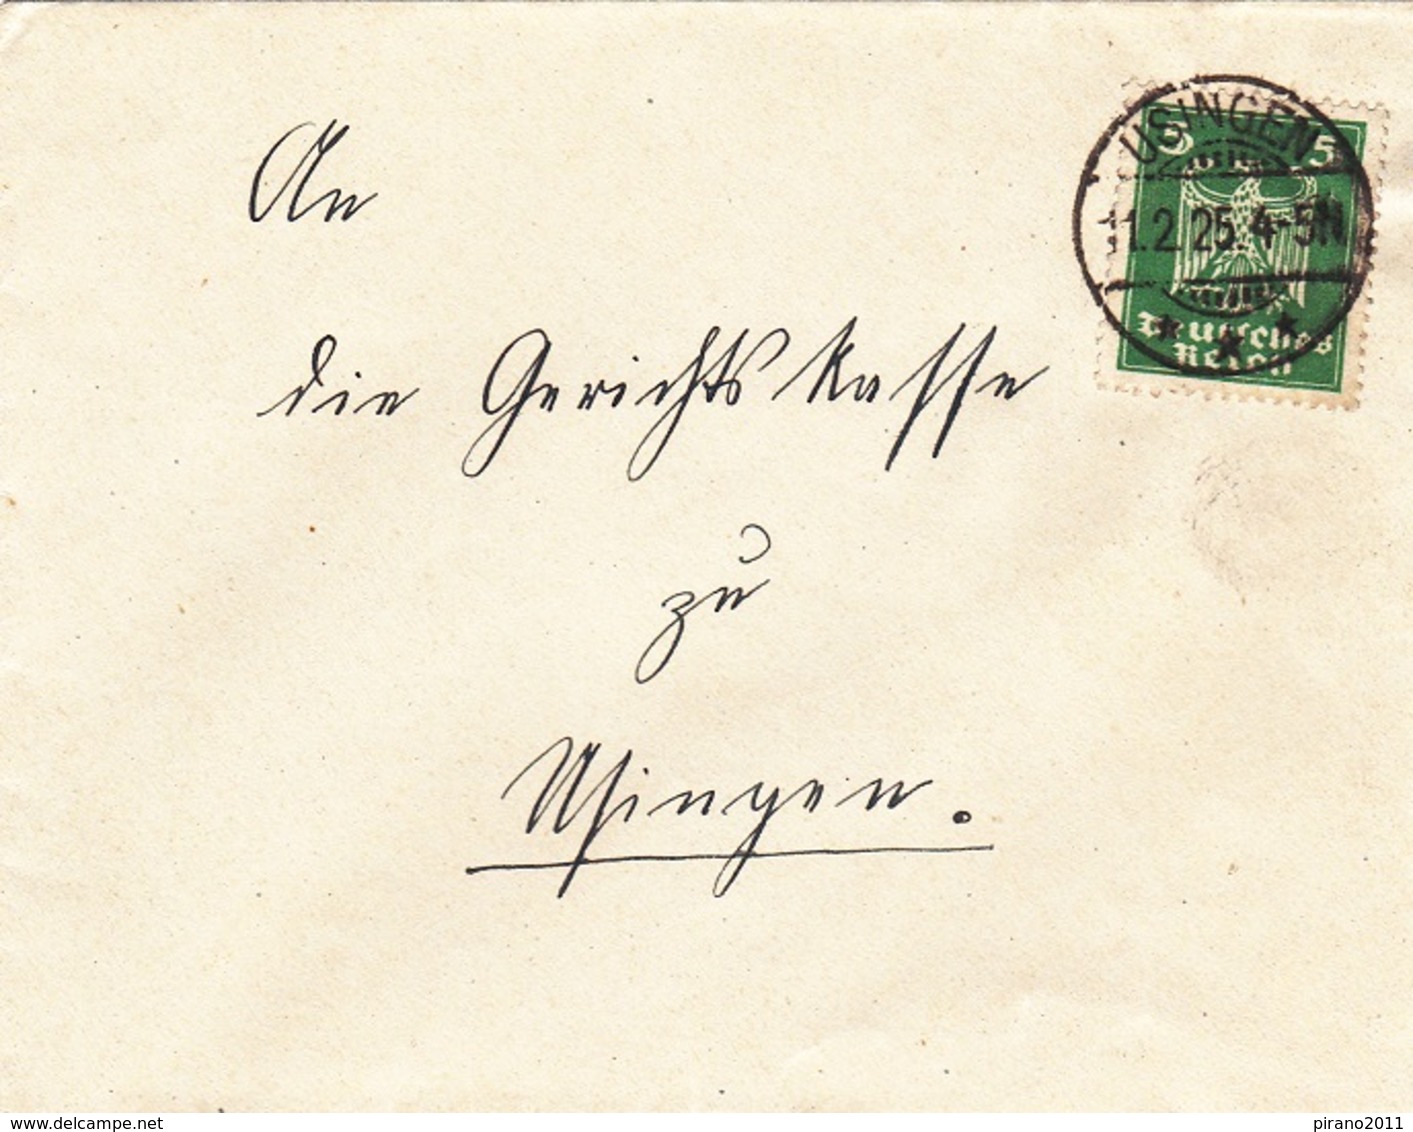 USINGEN
5 5
11.2.25.4-5N
* * *
Deutsches
Reich
An
die Gerichtskasse
zu
Usingen.
www.delcampe.net
pirano2011